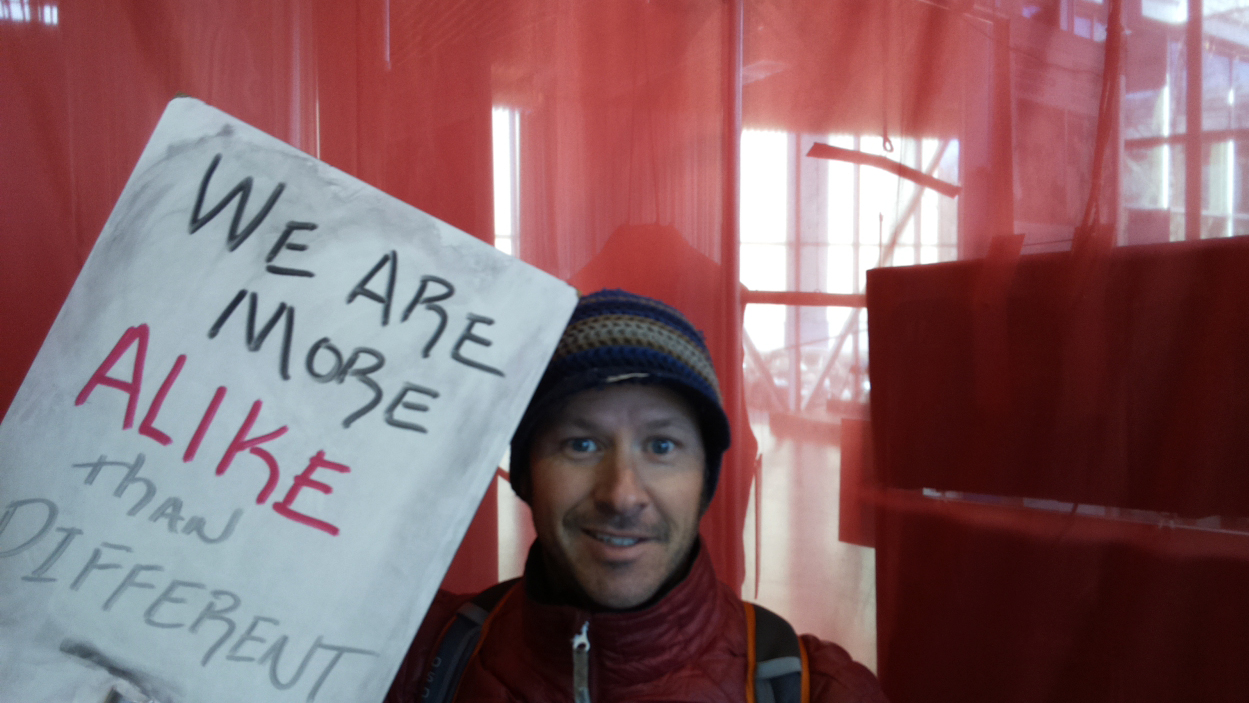 WE ARE
MORE
ALIKE
than
DIFFERENT